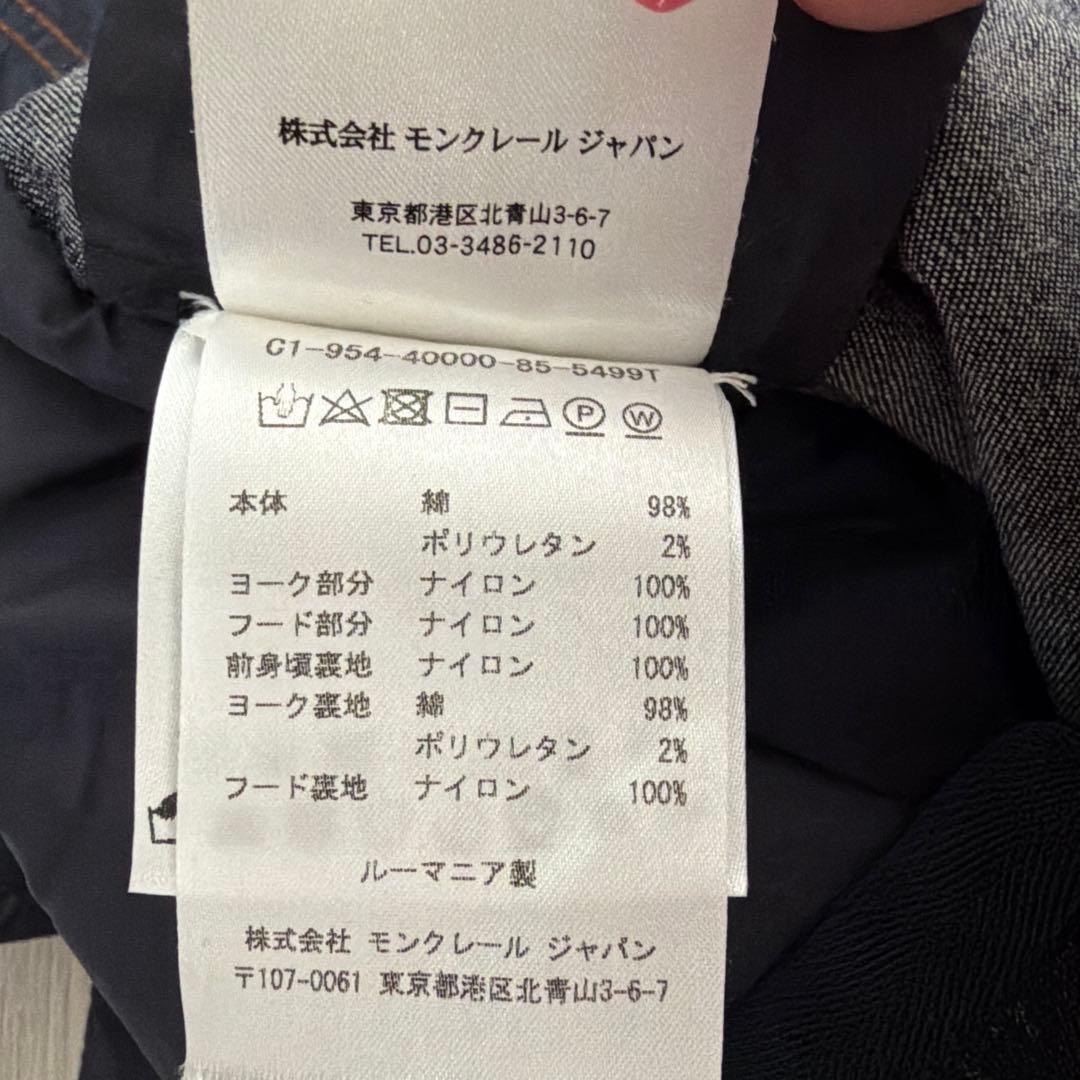 株式会社 モンクレール ジャパン
東京都港区北青山3-6-7
TEL.03-3486-2110
C1-954-40000-85-5499T
P W
本体 綿 98%
ポリウレタン 2%
ヨーク部分 ナイロン 100%
フード部分 ナイロン 100%
前身頃裏地 ナイロン 100%
ヨーク裏地 綿 98%
ポリウレタン 2%
フード裏地 ナイロン 100%
ルーマニア製
株式会社 モンクレール ジャパン
〒107-0061 東京都港区北青山3-6-7